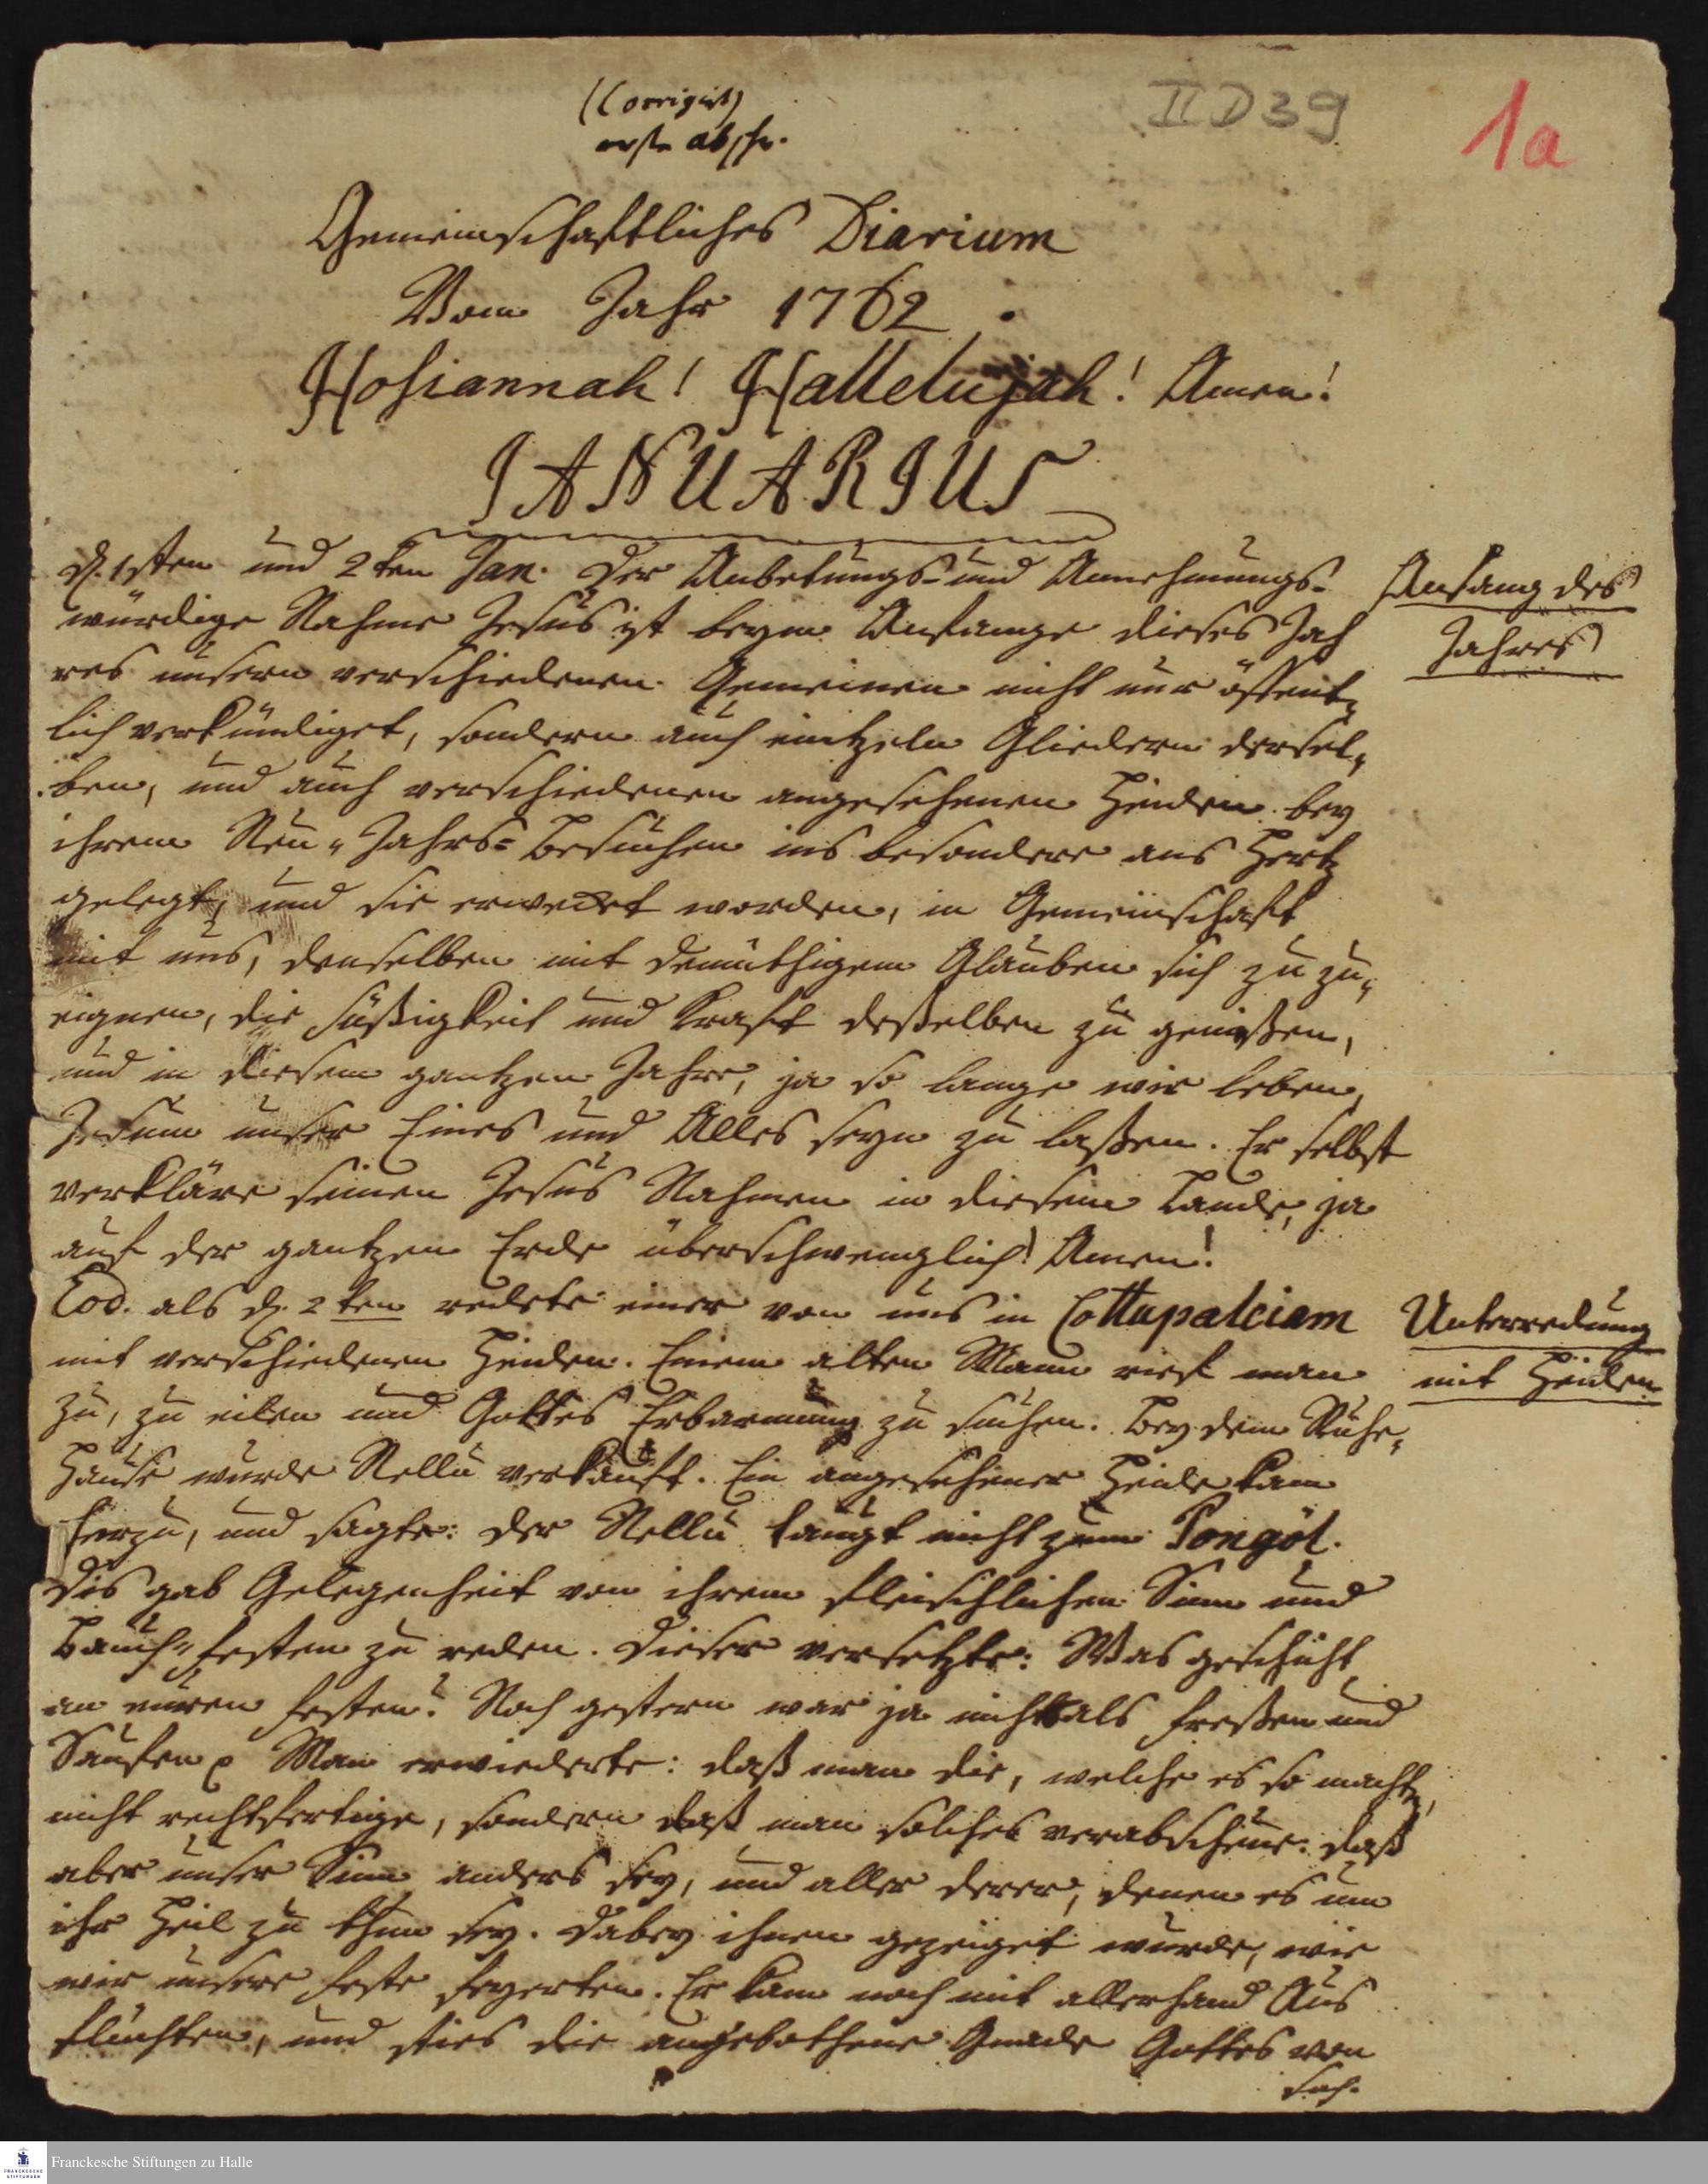 (Corrigirt)
erste absch.
II D 39
1a
Gemeinschaftliches Diarium
Vom Jahr 1762.
Hosiannah! Hallelujah! Amen!
JANUARIUS
d. 1sten und 2ten Jan. Der Anbetungs- und Annehmungs-
Anfang des
würdige Nahme Jesus ist beym Anfange dieses Jah
Jahres
res unsern verschiedenen Gemeinen nicht nur öffent-
lich verkündiget, sondern auch eintzeln Gliedern dersel-
ben, und auch verschiedenen angesehenen Heiden bey
ihrem Neu-Jahrs-Besuchen ins besondere ans Hertz
gelegt, und sie erwecket worden, in Gemeinschaft
mit uns, denselben mit demüthigem Glauben sich zu zu-
eignen, die Süßigkeit und Kraft deßelben zu genießen,
und in diesem gantzen Jahre, ja so lange wir leben,
Jesum unser Eines und Alles seyn zu laßen. Er selbst
verkläre seinen Jesus Nahmen in diesem Lande, ja
auf der gantzen Erde überschwenglich! Amen!
Eod. als d. 2ten redete einer von uns in Cottupaleiam
Unterredung
mit verschiedenen Heiden. Einem alten Mann rief man
mit Heiden
zu, zu eilen und Gottes Erbarmung zu suchen. Bey dem Ruhe-
Hause wurde Nellu verkauft. Ein angesehener Heide kam
herzu, und sagte: der Nellu taugt nicht zum Pongöl.
Dis gab Gelegenheit von ihrem fleischlichen Sinn und
Bauch-Festen zu reden. Dieser versetzte: Was geschicht
an euren Festen? Noch gestern war ja nichts als Freßen und
Saufen p Man erwiederte: daß man die, welche es so machten,
nicht rechtfertige, sondern daß man solches verabscheue: daß
aber unser Sinn anders sey, und aller derer, denen es um
ihr Heil zu thun sey. Dabey ihnen gezeiget wurde, wie
wir unsere Feste feyerten. Er kam noch mit allerhand Aus
flüchten, und sties die angebothene Gnade Gottes von
sich.
Franckesche Stiftungen zu Halle